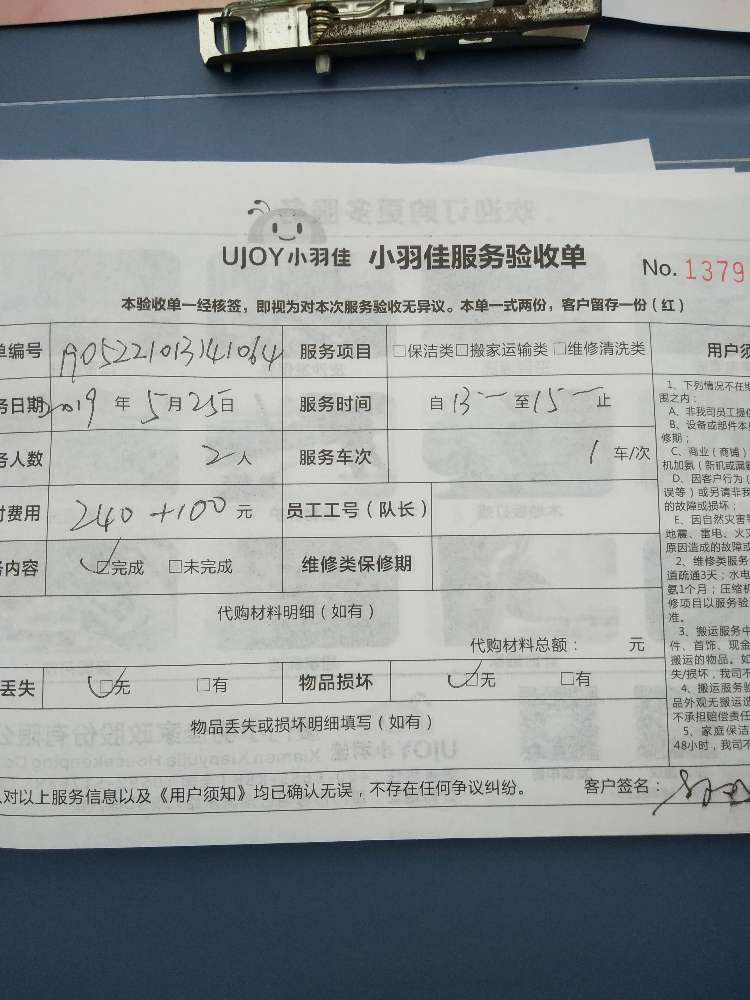 UJOY小羽佳 小羽佳服务验收单 No. 1379
本验收单一经核签，即视为对本次服务验收无异议。本单一式两份，客户留存一份（红）
单编号 A05221013141064 服务项目 □保洁类□搬家运输类 □维修清洗类 用户须
务日期 2019 年 5月25日 服务时间 自 13一 至 15一 止
务人数 2人 服务车次 1 车/次
付费用 240+100 元 员工工号（队长）
务内容 □完成 □未完成 维修类保修期
代购材料明细（如有）
代购材料总额： 元
丢失 □无 □有 物品损坏 □无 □有
物品丢失或损坏明细填写（如有）
对以上服务信息以及《用户须知》均已确认无误，不存在任何争议纠纷。 客户签名：
1、下列情况不在维
围之内：
A、非我司员工提供
B、设备或部件本身
修期；
C、商业（商铺）
机加氨（新机或漏氨
D、因客户行为（
误等）或另请非我
的故障或损坏；
E、因自然灾害等
地震、雷电、火灾
原因造成的故障或
2、维修类服务
道疏通3天；水电
氨1个月；压缩机
修项目以服务验
准。
3、搬运服务中
件、首饰、现金
搬运的物品。如
失/损坏，我司不
4、搬运服务验
品外观无搬运造
不承担赔偿责任
5、家庭保洁
48小时，我司不